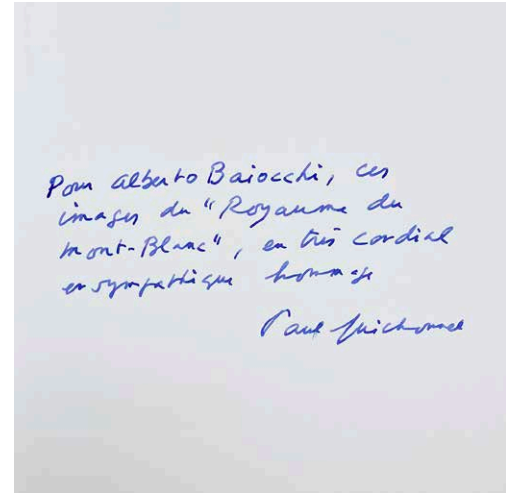 Pour Alberto Baiocchi, ces
images du "Royaume du
Mont-Blanc", en très cordial
et sympathique hommage
Paul Guichonnet